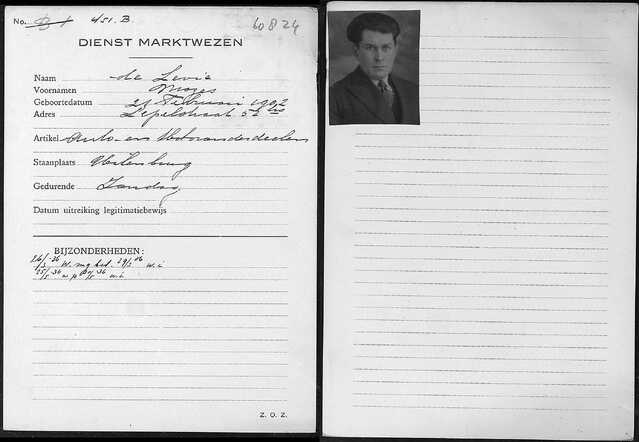 No. 451. B. 60824
DIENST MARKTWEZEN
Naam de Levie
Voornamen Mozes
Geboortedatum 21 Februari 1902
Adres Lepelstraat 52 hs
Artikel Auto- en Motoronderdeelen
Staanplaats Uilenburg
Gedurende Zondag
Datum uitreiking legitimatiebewijs
BIJZONDERHEDEN:
w.i.
25/5 36 w.i.
Z. O. Z.